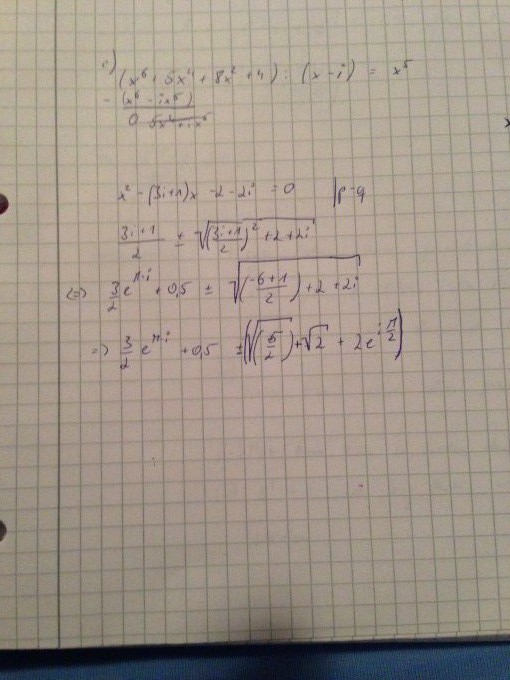 c)
(x⁶ + 5x⁴ + 8x² + 4) : (x - i) = x⁵
- (x⁶ - ix⁵)
0 5x⁴ + ix⁵
x² - (3i+1)x - 2 - 2i = 0 | p-q
(3i+1)/2 ± √(((3i+1)/2)² + 2 + 2i)
(=) 3/2 e^(π·i) + 0,5 ± √((-6+1)/2) + 2 + 2i
=> 3/2 e^(π·i) + 0,5 ± (√(5/2) + √2 + 2e^(i π/2))